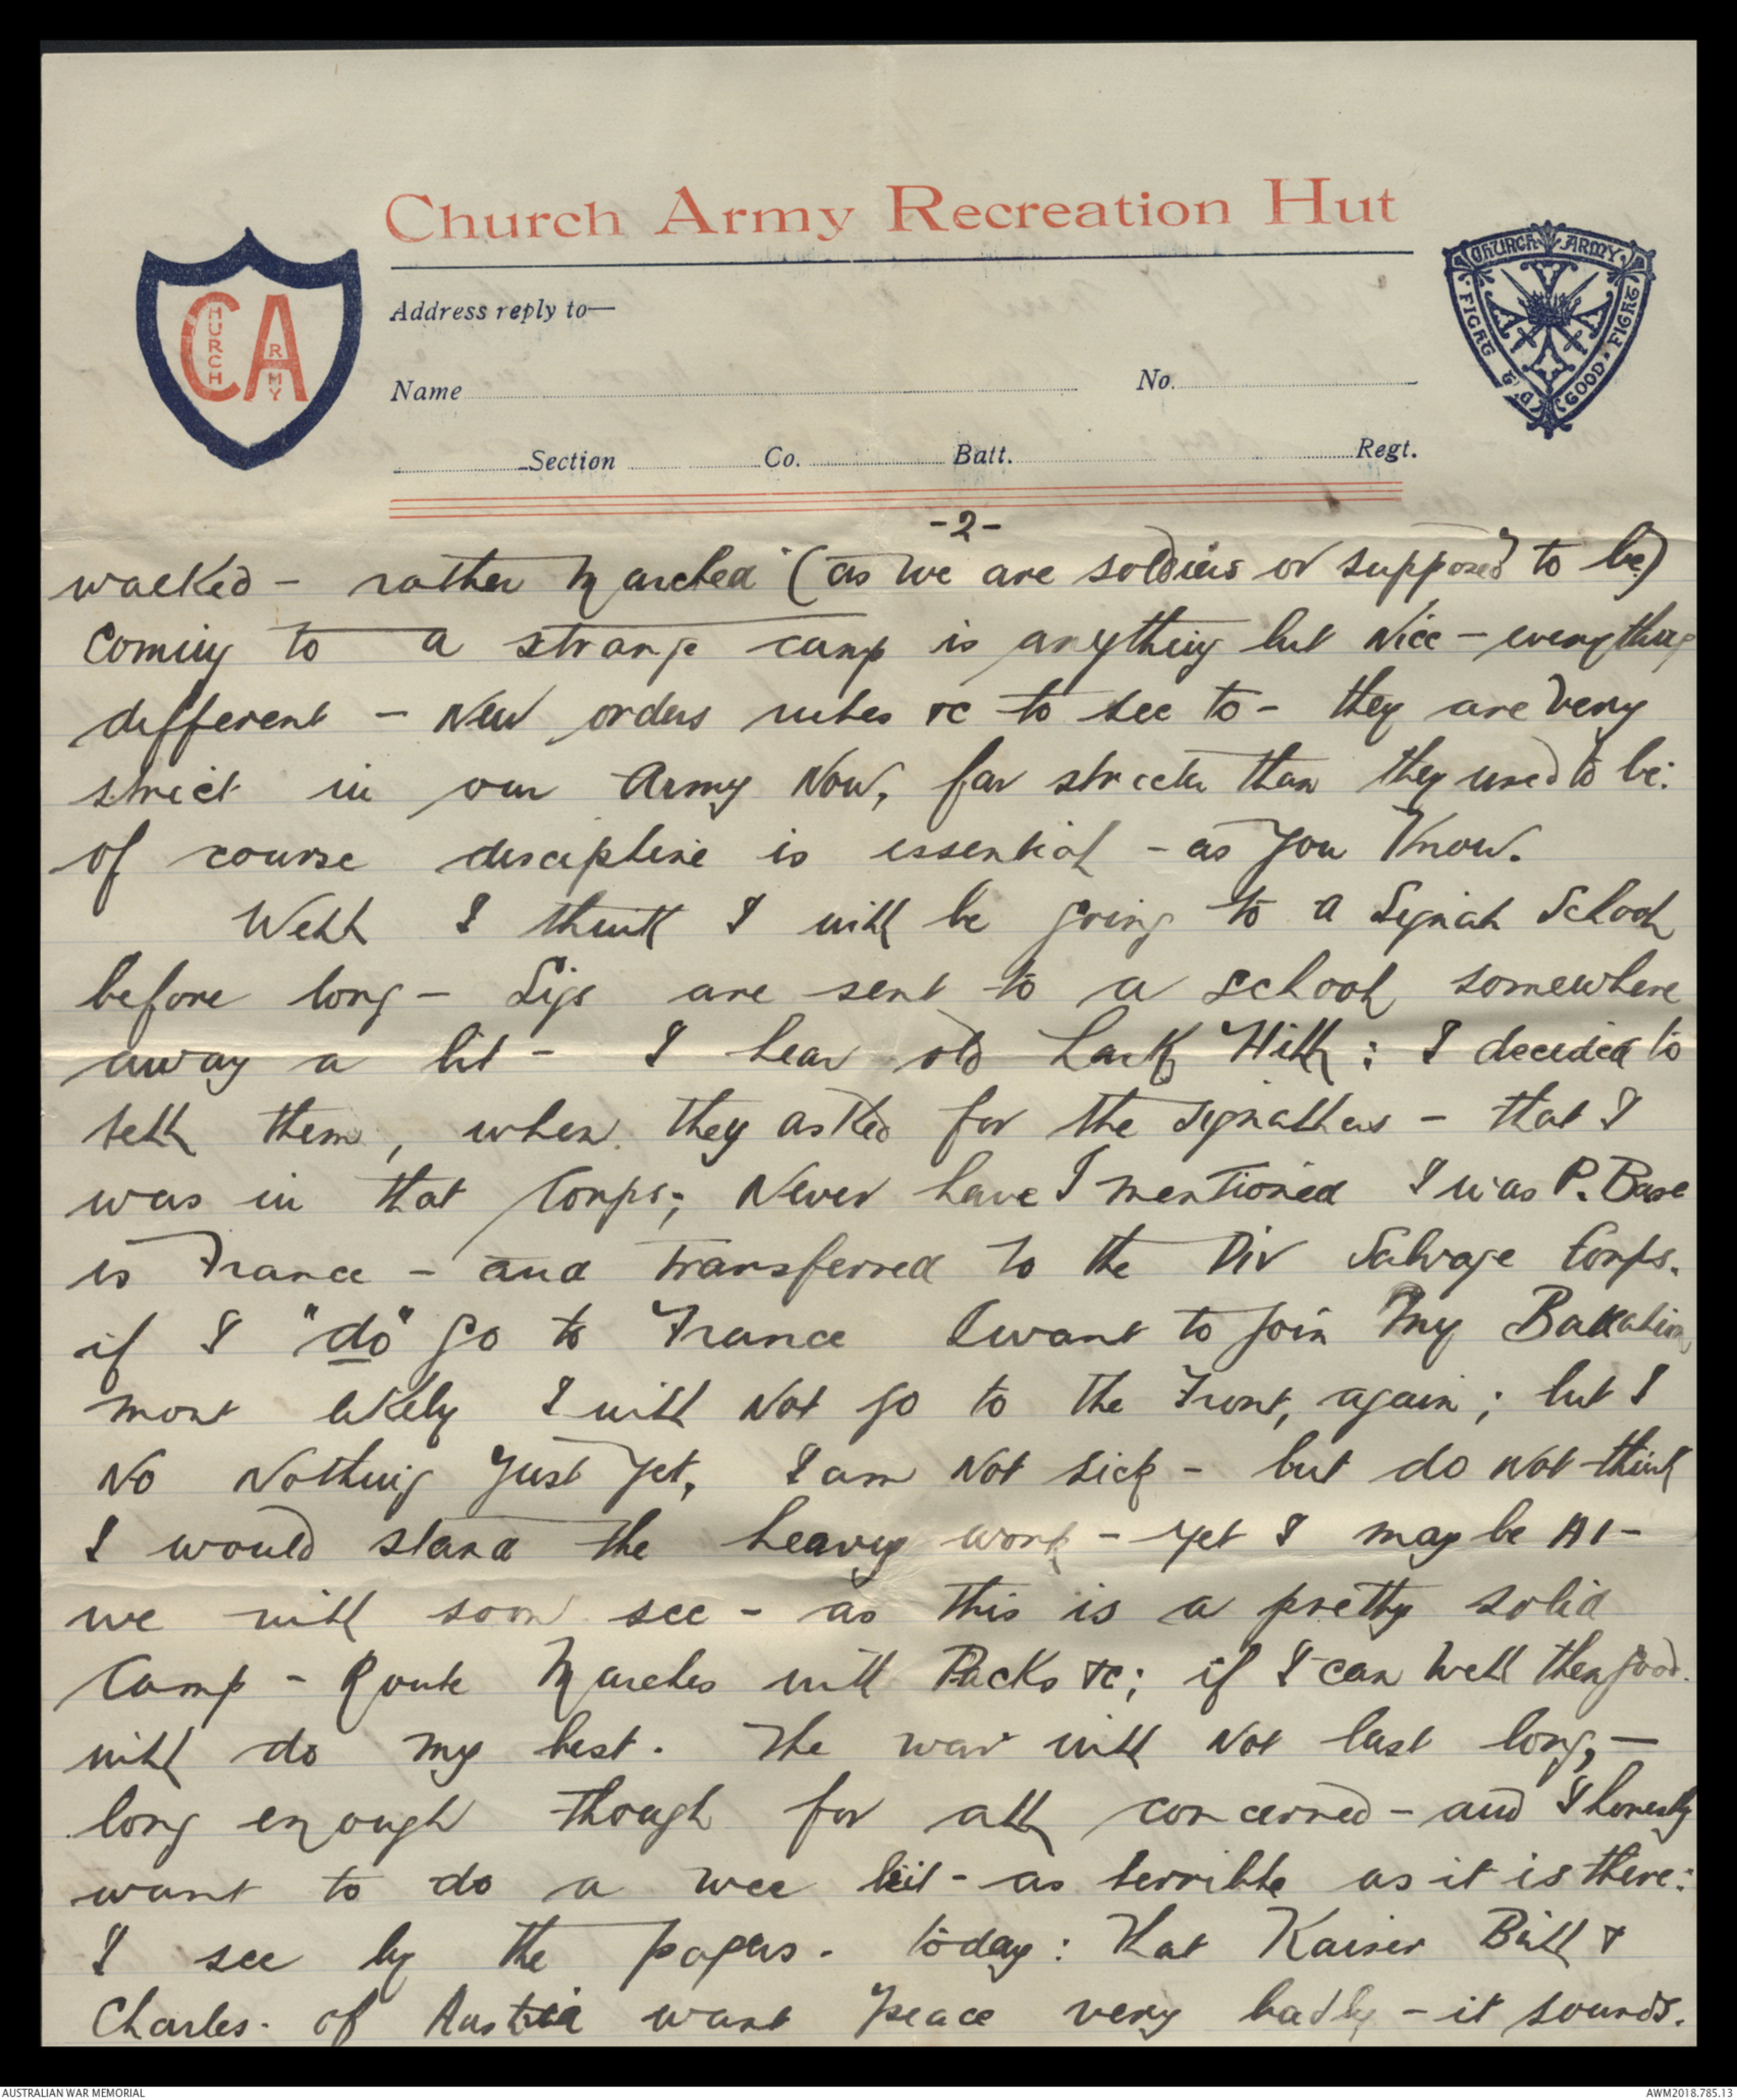 Church Army Recreation Hut
CHURCH ARMY
CHURCH ARMY
FIGHT THE GOOD FIGHT
Address reply to—
Name No.
Section Co. Batt. Regt.
-2-
walked - rather Marched (as we are soldiers or supposed to be)
Coming to a strange camp is anything but Nice - everything
different - New orders rules &c to see to - they are very
strict in our Army Now, far stricter than they used to be:
of course discipline is essential - as you Know.
Well I think I will be going to a Signal School
before long - Sigs are sent to a school somewhere
away a bit - I hear old Lark Hill; I decided to
tell them, when they asked for the signallers - that I
was in that Corps; Never have I mentioned I was P. Base
is France - and transferred to the Div Salvage Corps.
if I "do" go to France I want to join My Battalion
most likely I will Not go to the Front, again; but I
No Nothing Just Yet, I am Not sick - but do Not think
I would stand the heavy work - yet I may be A1 -
we will soon see - as this is a pretty solid
Camp - Route Marches with Packs &c; if I can well then good.
will do my best. The war will Not last long, -
long enough though for all concerned - and I honestly
want to do a wee bit - as terrible as it is there:
I see by the papers. today: that Kaiser Bill &
Charles. of Austria want peace very badly - it sounds.
AUSTRALIAN WAR MEMORIAL
AWM2018.785.13